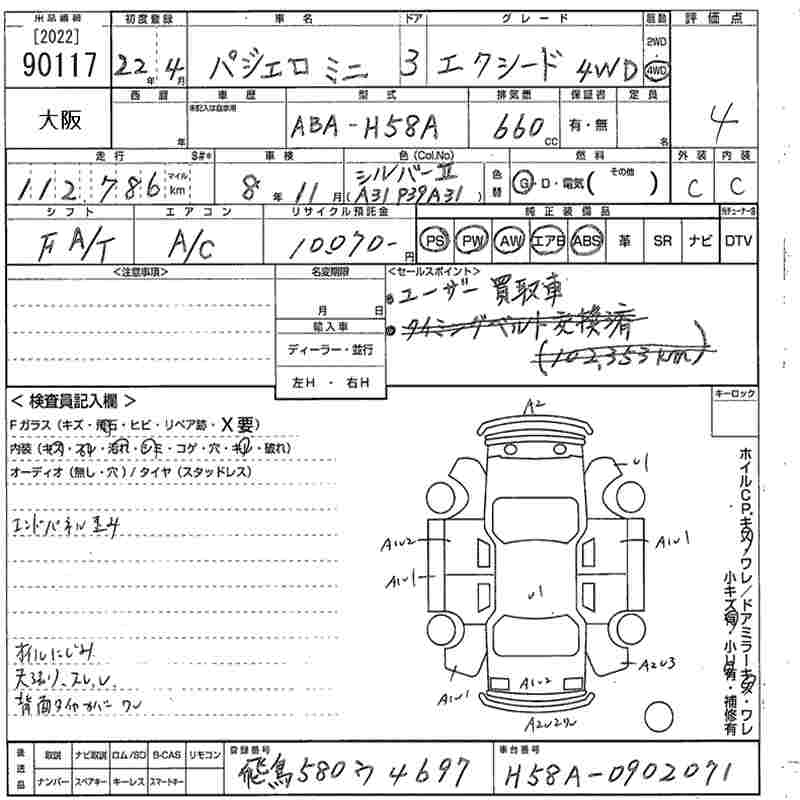 出品番号 初度登録 車名 ドア グレード 駆動 評価点
[2022]
90117 22年 4月 パジェロ ミニ 3 エクシード 4WD 2WD 4WD 4
大阪 西暦 年 車歴 未記入は自家用 型式 ABA-H58A 排気量 660cc 保証書 有・無 定員 名
走行 S#* 車検 色(Col.No) 色替 燃料 外装 内装
112,786 マイル km 8年 11月 シルバーII (A31P39A31) G・D・電気( その他 ) C C
シフト エアコン リサイクル預託金 純正装備品
FA/T A/C 10070-円 PS PW AW エアB ABS 革 SR ナビ DTV
<注意事項> 名変期限 <セールスポイント>
月 日 ユーザー買取車
輸入車 タイミングベルト交換済
ディーラー・並行 (102,353km)
左H・右H
<検査員記入欄> キーロック
Fガラス(キズ・飛石・ヒビ・リペア跡・X要)
内装(キズ・スレ・汚れ・シミ・コゲ・穴・キレ・破れ)
オーディオ(無し・穴)/タイヤ(スタッドレス)
エンドパネル
オイルにじみ
背面タイヤカバー ワレ
A2
U1
A1U2 A1U1
A1U1 U1
A1U1 A1U2 A2U3
ホイルCP.キズ/ワレ/ドアミラーキズ・ワレ
小キズ有・小凹有・補修有
後送品 取説 ナビ取説 ロム/SD B-CAS リモコン 登録番号 車台番号
ナンバー スペアキー キーレス スマートキー 飛鳥 580 ウ 4697 H58A-0902071